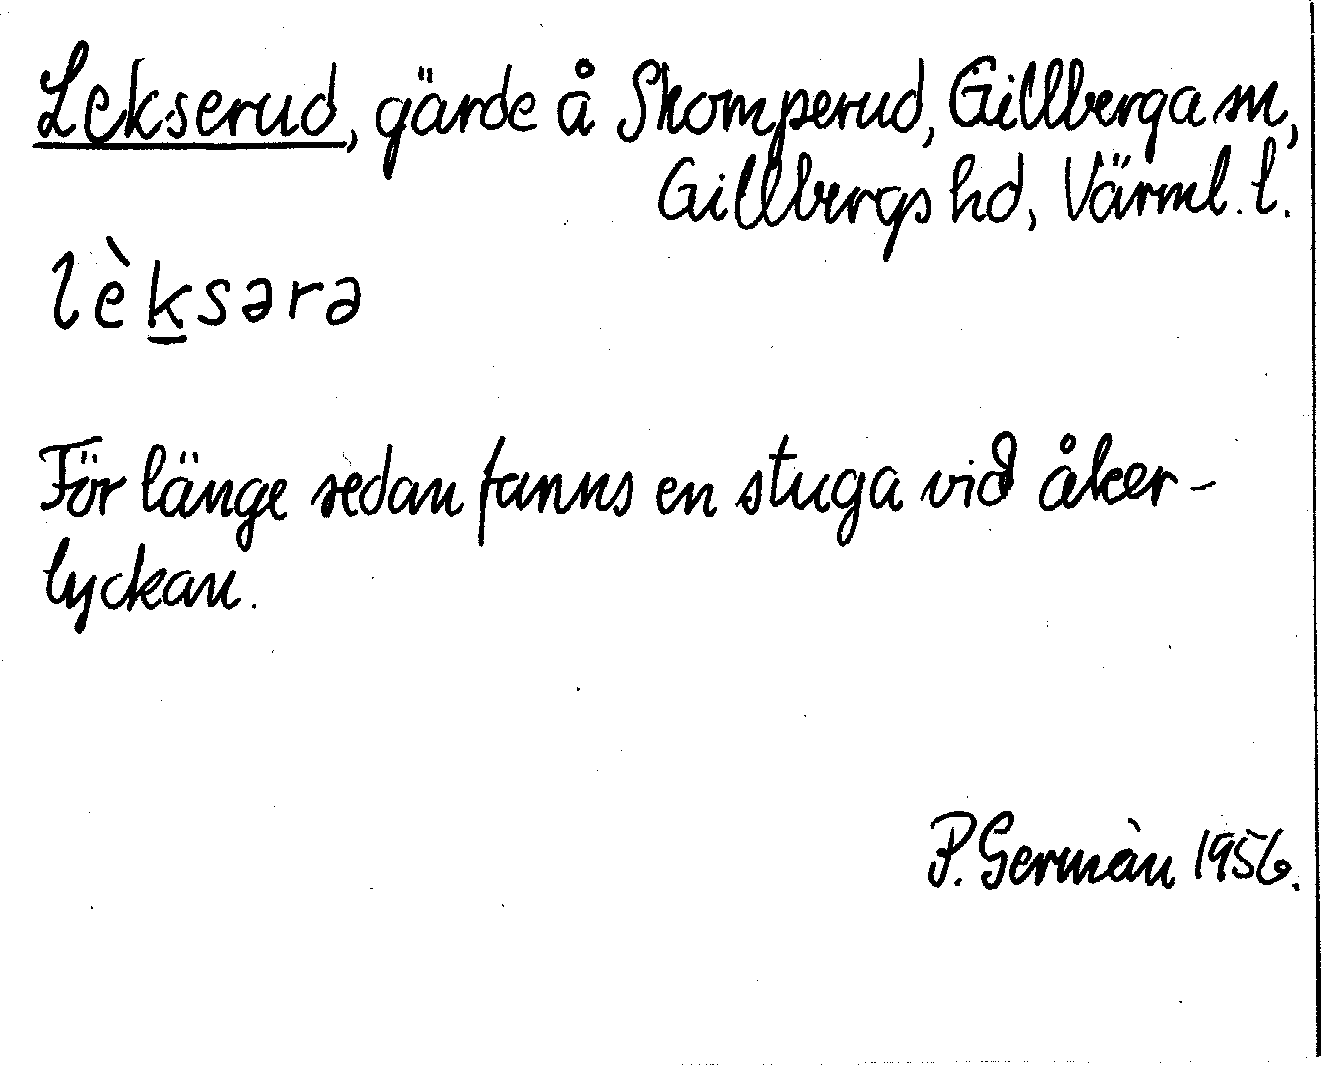 Lekserud, gärde å Skomperud, Gillberga sn,
Gillbergs hd, Värml. l.
lèk̲sərə
För länge sedan fanns en stuga vid åker-
lyckan.
P. Germàn 1956.